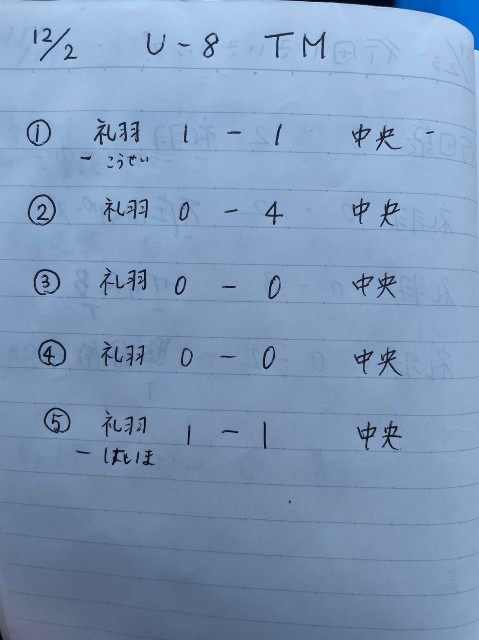 12/2 U-8 TM
① 礼羽 1 - 1 中央 -
- こうせい
② 礼羽 0 - 4 中央
③ 礼羽 0 - 0 中央
④ 礼羽 0 - 0 中央
⑤ 礼羽 1 - 1 中央
- はしま